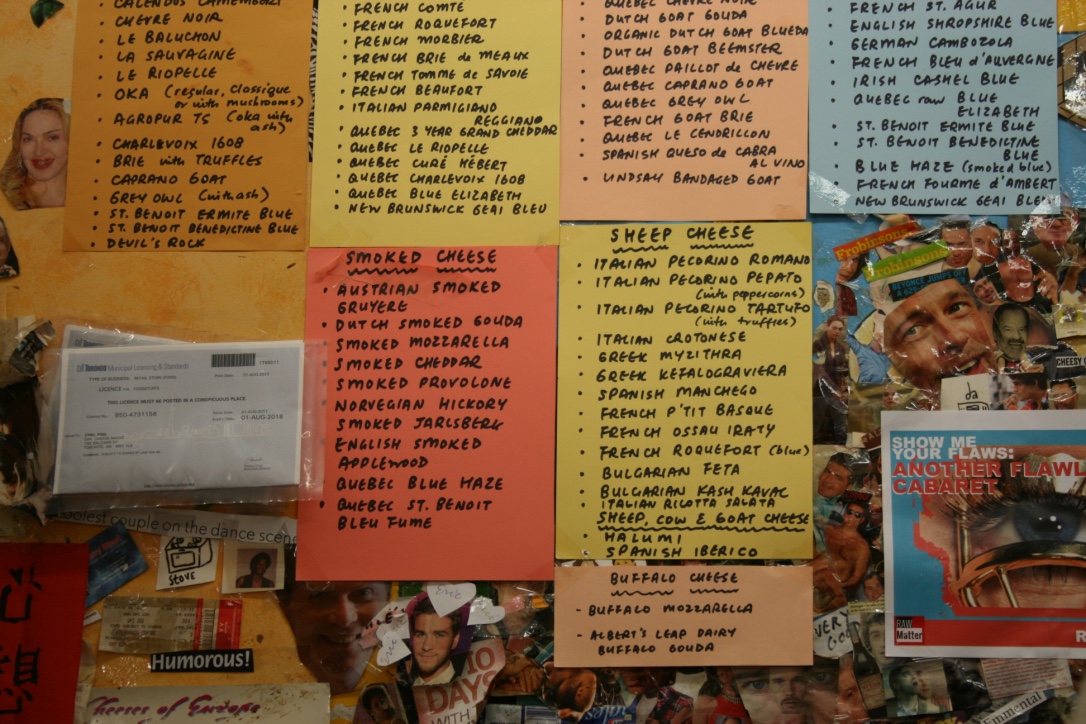 CALENDOS CAMEMBERT
CHEVRE NOIR
LE BALUCHON
LA SAUVAGINE
LE RIOPELLE
OKA (regular, classique
or with mushrooms)
AGROPUR T5 (oka with
ash)
CHARLEVOIX 1608
BRIE with TRUFFLES
CAPRANO GOAT
GREY OWL (with ash)
ST. BENOIT ERMITE BLUE
ST. BENOIT BENEDICTINE BLUE
DEVIL'S ROCK
FRENCH COMTÉ
FRENCH ROQUEFORT
FRENCH MORBIER
FRENCH BRIE de MEAUX
FRENCH TOMME de SAVOIE
FRENCH BEAUFORT
ITALIAN PARMIGIANO
REGGIANO
QUEBEC 3 YEAR GRAND CHEDDAR
QUEBEC LE RIOPELLE
QUEBEC CURÉ HÉBERT
QUEBEC CHARLEVOIX 1608
QUEBEC BLUE ELIZABETH
NEW BRUNSWICK GEAI BLEU
QUEBEC CHEVRE NOIR
DUTCH GOAT GOUDA
ORGANIC DUTCH GOAT BLUEDA
DUTCH GOAT BEEMSTER
QUEBEC PAILLOT de CHEVRE
QUEBEC CAPRANO GOAT
QUEBEC GREY OWL
FRENCH GOAT BRIE
QUEBEC LE CENDRILLON
SPANISH QUESO de CABRA
AL VINO
LINDSAY BANDAGED GOAT
FRENCH ST. AGUR
ENGLISH SHROPSHIRE BLUE
GERMAN CAMBOZOLA
FRENCH BLEU d'AUVERGNE
IRISH CASHEL BLUE
QUEBEC raw BLUE
ELIZABETH
ST. BENOIT ERMITE BLUE
ST. BENOIT BENEDICTINE
BLUE
BLUE HAZE (smoked blue)
FRENCH FOURME d'AMBERT
NEW BRUNSWICK GEAI BLEU
SMOKED CHEESE
AUSTRIAN SMOKED
GRUYERE
DUTCH SMOKED GOUDA
SMOKED MOZZARELLA
SMOKED CHEDDAR
SMOKED PROVOLONE
NORWEGIAN HICKORY
SMOKED JARLSBERG
ENGLISH SMOKED
APPLEWOOD
QUEBEC BLUE HAZE
QUEBEC ST. BENOIT
BLEU FUME
SHEEP CHEESE
ITALIAN PECORINO ROMANO
ITALIAN PECORINO PEPATO
(with peppercorns)
ITALIAN PECORINO TARTUFO
(with truffles)
ITALIAN CROTONESE
GREEK MYZITHRA
GREEK KEFALOGRAVIERA
SPANISH MANCHEGO
FRENCH P'TIT BASQUE
FRENCH OSSAU IRATY
FRENCH ROQUEFORT (blue)
BULGARIAN FETA
BULGARIAN KASH KAVAL
ITALIAN RICOTTA SALATA
SHEEP, COW & GOAT CHEESE
HALUMI
SPANISH IBERICO
BUFFALO CHEESE
- BUFFALO MOZZARELLA
- ALBERT'S LEAP DAIRY
BUFFALO GOUDA
Toronto Municipal Licensing & Standards
THIS LICENCE MUST BE POSTED IN A CONSPICUOUS PLACE
01-AUG-2018
coolest couple on the dance scene
STOVE
Humorous!
Cheeses of Europe
心
想
Frobinsons
Frobinsons
CHEESY
da
SHOW ME
YOUR FLAWS:
ANOTHER FLAWL
CABARET
RAW
Matter
10
DAYS
WITH